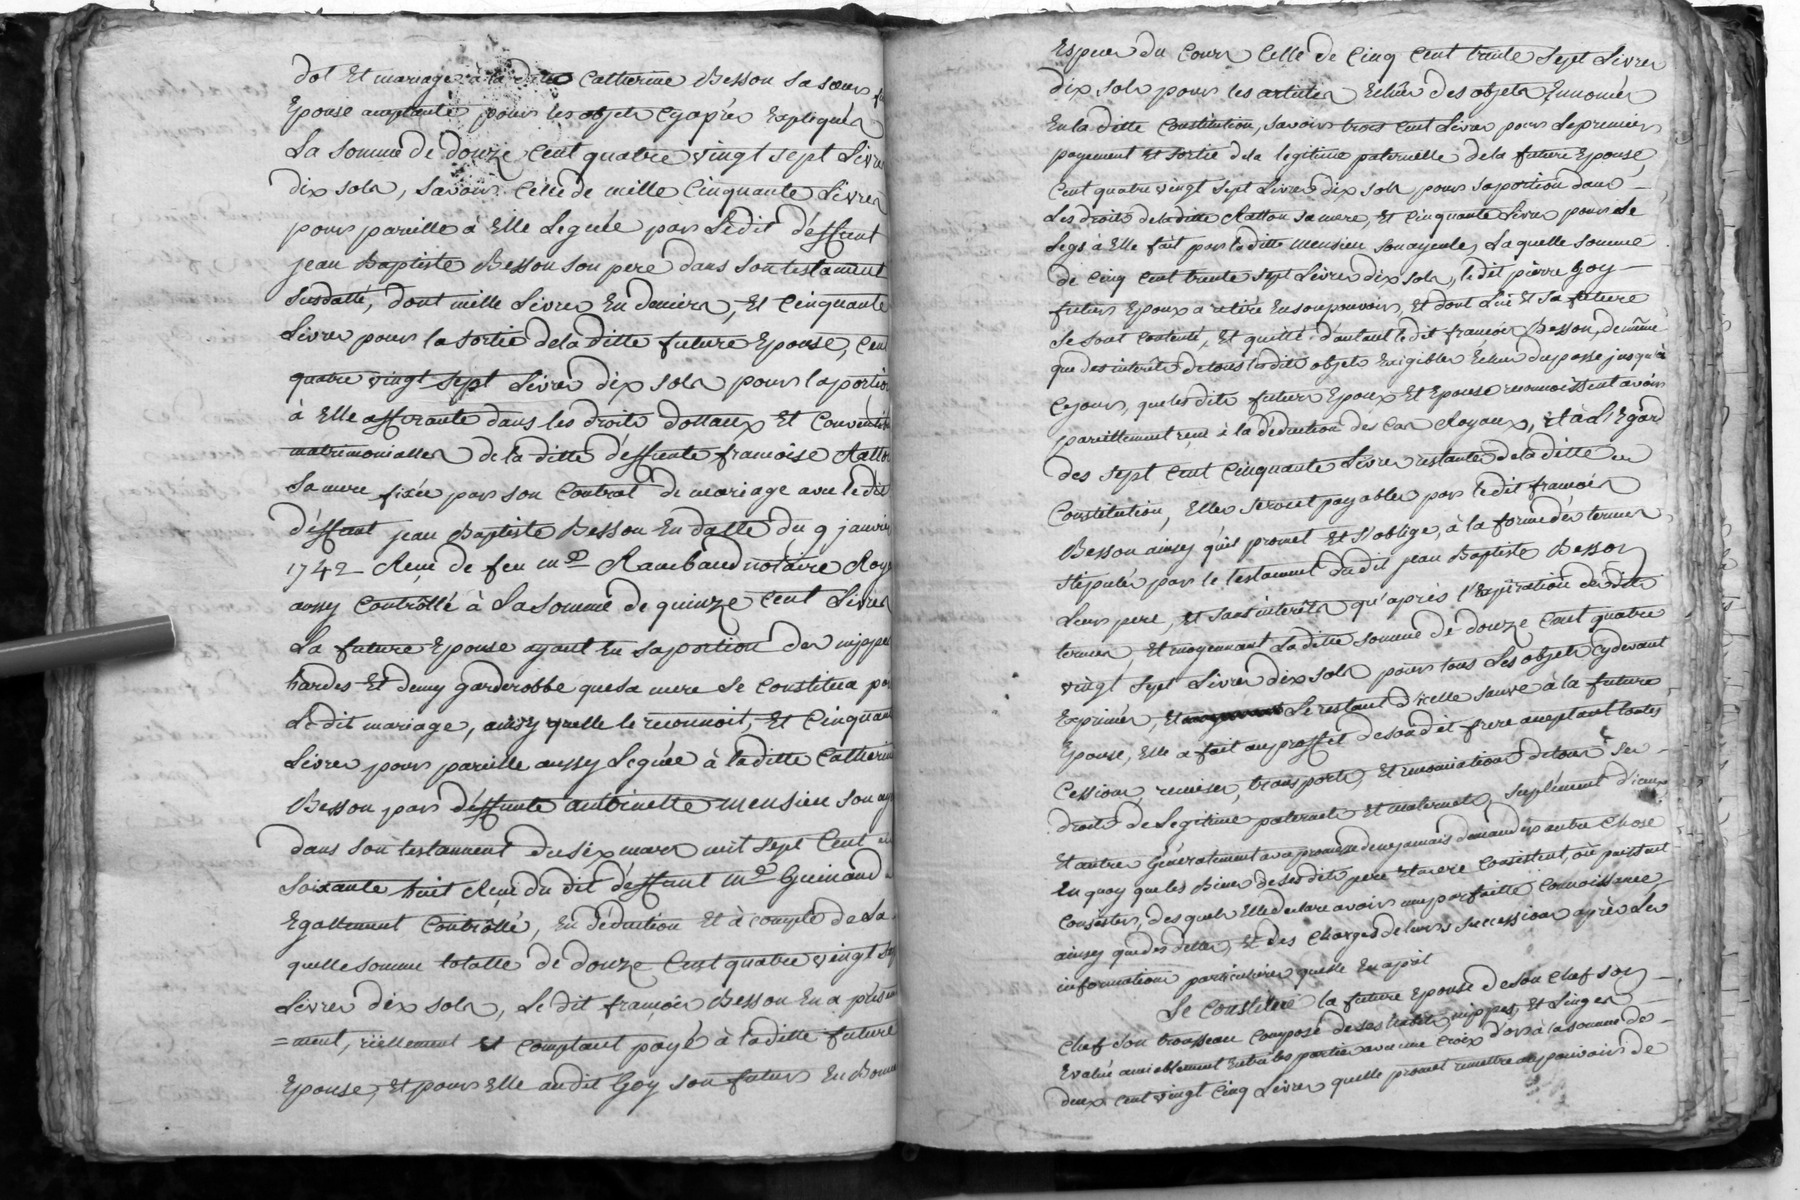 dot Et mariage à la ditte Catherine Besson sa sœur
Epouse acceptante pour les objets cyaprès Expliqués
La somme de douze cent quatre vingt sept Livres
dix sols, savoir celle de mille cinquante Livres
pour pareille à Elle Leguée par Ledit déffunt
jean Baptiste Besson son pere dans son testament
susdatté, dont mille Livres En deniers, Et cinquante
Livres pour la sortie dela ditte future Epouse, cent
quatre vingt sept Livres dix sols pour la portion
à Elle afferante dans les droits dottaux Et Convent
matrimonialles de la ditte déffunte francoise Ratton
sa mere fixée par son Contrat de mariage avec le dit
déffunt jean Baptiste Besson En datte du 9 janvier
1742 Reçu de feu me Raimbaud notaire Roy
aussy Controllé à La somme de quinze cent Livres
La future Epouse ayant Eu sa portion des nippes
hardes Et demy garderobbe que sa mere se Constitua
Ledit mariage, ainsy quelle le reconnoit, Et cinquante
Livres pour pareille aussy Leguée à laditte Catherine
Besson par déffunte antoinette mensieu son
dans son testament du six mars mil sept cent
soixante huit Reçu du dit déffunt me Guinand
Egallement Controllé, En déduction Et à compte de La
quelle somme totalle de douze cent quatre vingt sept
Livres dix sols, Le dit francois Besson En a présen
=ment, réellement Et comptant payé à laditte future
Epouse, Et pour Elle audit Goy son futur En bonnes
Espèces du cours celle de cinq cent trente sept Livres
dix sols pour les articles Echus des objets Enoncés
En la ditte Constitution, savoir trois cent Livres pour Le premier
payement Et sortie dela legitime paternelle dela future Epouse,
cent quatre vingt sept Livres dix sols pour sa portion dans
Les droits de laditte Ratton sa mere, Et cinquante Livres pour Le
Legs à Elle fait par laditte mensieu son ayeule, Laquelle somme
de cinq cent trente sept Livres dix sols, ledit pierre Goy
futur Epoux a retiré En son pouvoir, Et dont Lui Et sa future
se sont contenté, Et quitté d'autant le dit francois Besson, de même
que des interêts de tous lesdits objets Exigibles Echus du passé jusqu'à
cejour, que lesdits futurs Epoux Et Epouse reconnoissent avoir
pareillement reçu à la déduction des cas Royaux, Et à L'Egard
des sept cent cinquante Livres restantes dela ditte
Constitution, Elles seront payables par ledit francois
Besson ainsy qu'il promet Et s'oblige, à la forme des termes
stipulés par le testament dudit jean Baptiste Besson
Leur pere, Et sans interêts qu'après l'Expiration desdits
termes, Et moyennant Laditte somme de douze cent quatre
vingt sept Livres dix sols pour tous Les objets cydevant
Exprimés, Et Le restant d'icelle sauve à la future
Epouse, Elle a fait au proffit de son dit frere acceptant toutes
cession, remises, transports, Et renonciation de tous ses
droits de Legitime paternels Et maternels, suplement d'iceux
Et autres Généralement avec promesse de ne jamais demander autre chose
En quoy que les Biens de ses dits pere Et mere Consistent, ou puissent
Consister, desquels Elle declare avoir une parfaitte connoissance,
ainsy que des dettes, Et des charges de leurs successions après Les
informations particulieres quelle En a pris
Se Constitue la future Epouse de son chef son
chef son trousseau composé de ses habits, nippes, Et Linges
Evalué amiablement Entre les parties avec une croix d'or à la somme de
deux cent vingt cinq Livres quelle promet remettre au pouvoir de